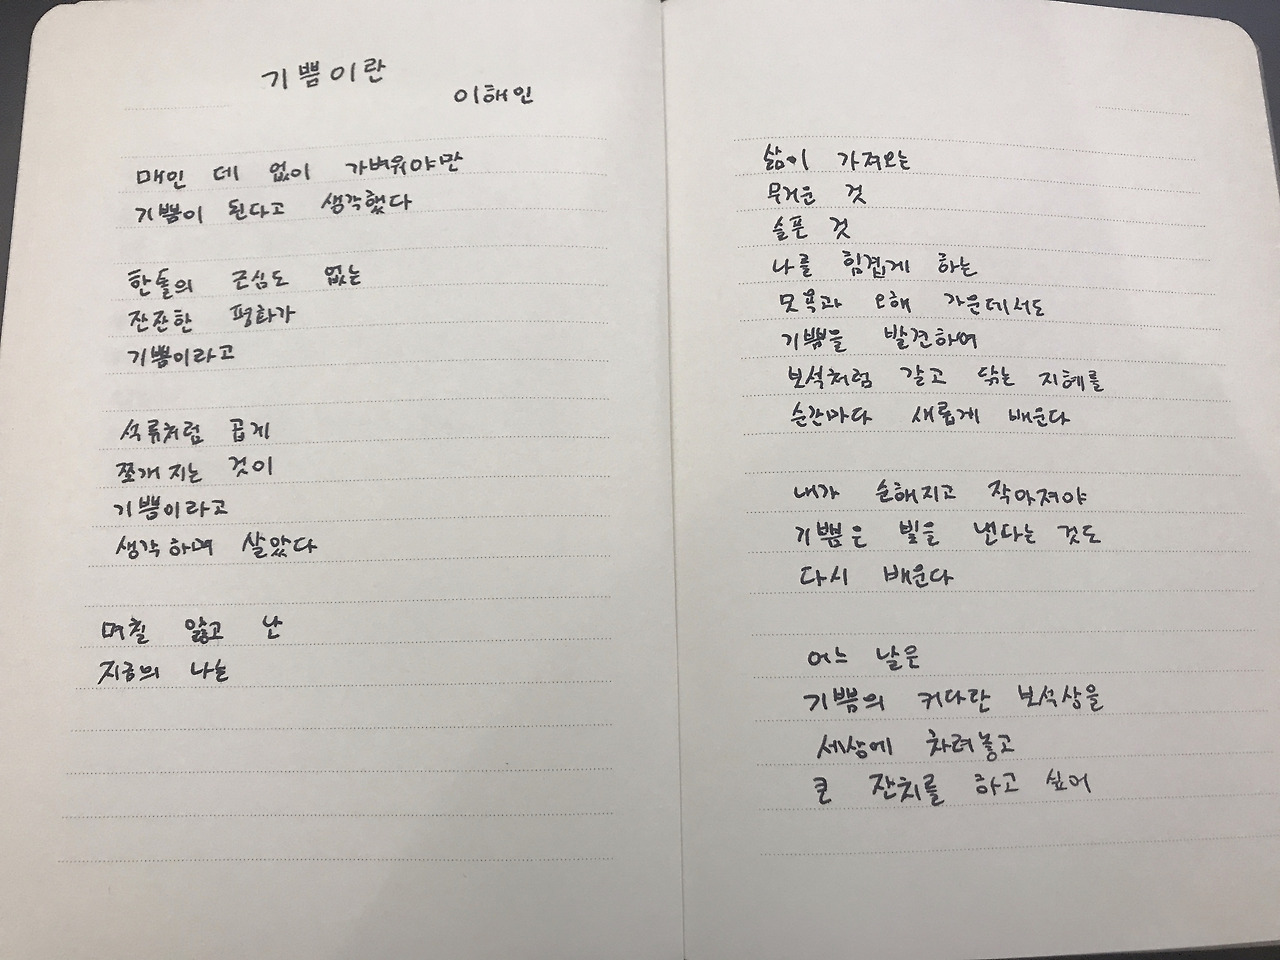 기쁨이란
이해인
매인 데 없이 가벼워야만
기쁨이 된다고 생각했다
한톨의 근심도 없는
잔잔한 평화가
기쁨이라고
석류처럼 곱게
쪼개지는 것이
기쁨이라고
생각하며 살았다
며칠 앓고 난
지금의 나는
삶이 가져오는
무거운 것
슬픈 것
나를 힘겹게 하는
모욕과 오해 가운데서도
기쁨을 발견하여
보석처럼 갈고 닦는 지혜를
순간마다 새롭게 배운다
내가 순해지고 작아져야
기쁨은 빛을 낸다는 것도
다시 배운다
어느 날은
기쁨의 커다란 보석상을
세상에 차려놓고
큰 잔치를 하고 싶어